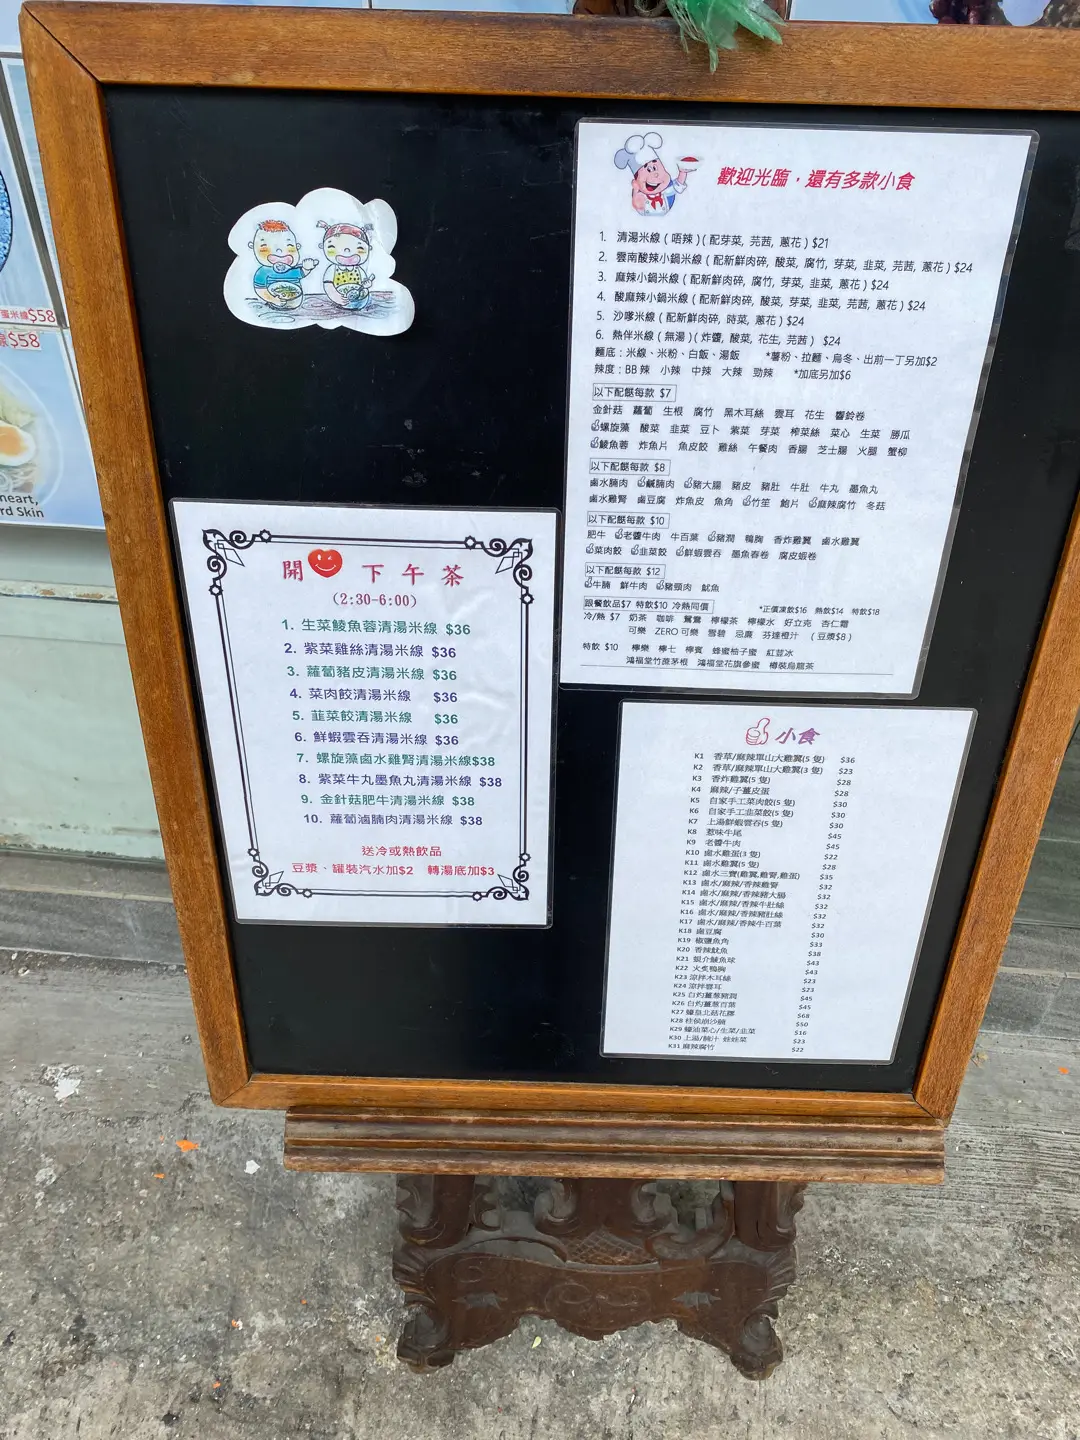 蛋米線$58
$58
heart,
rd Skin
歡迎光臨，還有多款小食
1. 清湯米線 ( 唔辣 )( 配芽菜, 芫茜, 蔥花 ) $21
2. 雲南酸辣小鍋米線 ( 配新鮮肉碎, 酸菜, 腐竹, 芽菜, 韭菜, 芫茜, 蔥花 ) $24
3. 麻辣小鍋米線 ( 配新鮮肉碎, 腐竹, 芽菜, 韭菜, 蔥花 ) $24
4. 酸麻辣小鍋米線 ( 配新鮮肉碎, 酸菜, 芽菜, 韭菜, 芫茜, 蔥花 ) $24
5. 沙嗲米線 ( 配新鮮肉碎, 時菜, 蔥花 ) $24
6. 熱伴米線 ( 無湯 )( 炸醬, 酸菜, 花生, 芫茜 ) $24
麵底：米線、米粉、白飯、湯飯 *薯粉、拉麵、烏冬、出前一丁另加$2
辣度：BB 辣 小辣 中辣 大辣 勁辣 *加底另加$6
以下配餸每款 $7
金針菇 蘿蔔 生根 腐竹 黑木耳絲 雲耳 花生 響鈴卷
螺旋藻 酸菜 韭菜 豆卜 紫菜 芽菜 榨菜絲 菜心 生菜 勝瓜
鯪魚蓉 炸魚片 魚皮餃 雞絲 午餐肉 香腸 芝士腸 火腿 蟹柳
以下配餸每款 $8
鹵水腩肉 鹹腩肉 豬大腸 豬皮 豬肚 牛肚 牛丸 墨魚丸
鹵水雞腎 鹵豆腐 炸魚皮 魚角 竹笙 鮑片 麻辣腐竹 冬菇
以下配餸每款 $10
肥牛 老醬牛肉 牛百葉 豬潤 鴨胸 香炸雞翼 鹵水雞翼
菜肉餃 韭菜餃 鮮蝦雲吞 墨魚春卷 腐皮蝦卷
以下配餸每款 $12
牛腩 鮮牛肉 豬頸肉 魷魚
跟餐飲品$7 特飲$10 冷熱同價 *正價凍飲$16 熱飲$14 特飲$18
冷/熱 $7 奶茶 咖啡 鴛鴦 檸檬茶 檸檬水 好立克 杏仁霜
可樂 ZERO 可樂 雪碧 忌廉 芬達橙汁 ( 豆漿$8 )
特飲 $10 檸樂 檸七 檸賓 蜂蜜柚子蜜 紅荳冰
鴻福堂竹蔗茅根 鴻福堂花旗參蜜 樽裝烏龍茶
開 下午茶
(2:30-6:00)
1. 生菜鯪魚蓉清湯米線 $36
2. 紫菜雞絲清湯米線 $36
3. 蘿蔔豬皮清湯米線 $36
4. 菜肉餃清湯米線 $36
5. 韮菜餃清湯米線 $36
6. 鮮蝦雲吞清湯米線 $36
7. 螺旋藻鹵水雞腎清湯米線$38
8. 紫菜牛丸墨魚丸清湯米線 $38
9. 金針菇肥牛清湯米線 $38
10. 蘿蔔滷腩肉清湯米線 $38
送冷或熱飲品
豆漿、罐裝汽水加$2 轉湯底加$3
小食
K1 香草/麻辣單山大雞翼(5 隻) $36
K2 香草/麻辣單山大雞翼(3 隻) $23
K3 香炸雞翼(5 隻) $28
K4 麻辣/子薑皮蛋 $28
K5 自家手工菜肉餃(5 隻) $30
K6 自家手工韭菜餃(5 隻) $30
K7 上湯鮮蝦雲吞(5 隻) $30
K8 惹味牛尾 $45
K9 老醬牛肉 $45
K10 鹵水雞蛋(3 隻) $22
K11 鹵水雞翼(5 隻) $28
K12 鹵水三寶(雞翼,雞腎,雞蛋) $35
K13 鹵水/麻辣/香辣雞腎 $32
K14 鹵水/麻辣/香辣豬大腸 $32
K15 鹵水/麻辣/香辣牛肚絲 $32
K16 鹵水/麻辣/香辣豬肚絲 $32
K17 鹵水/麻辣/香辣牛百葉 $32
K18 鹵豆腐 $30
K19 椒鹽魚角 $33
K20 香辣魷魚 $38
K21 蜆介鯪魚球 $43
K22 火炙鴨胸 $43
K23 涼拌木耳絲 $23
K24 涼拌雲耳 $23
K25 白灼薑蔥豬潤 $45
K26 白灼薑蔥百葉 $45
K27 蠔皇北菇花膠 $68
K28 柱侯崩沙腩 $50
K29 蠔油菜心/生菜/韭菜 $16
K30 上湯/腩汁 娃娃菜 $23
K31 麻辣腐竹 $22